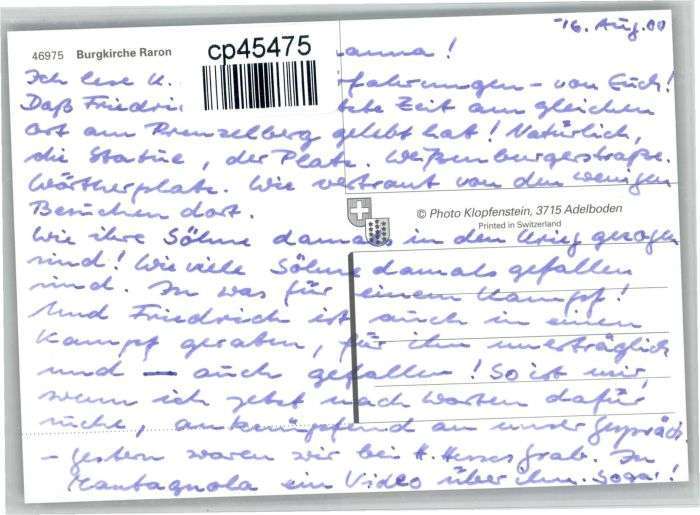 16. Aug. 00
46975 Burgkirche Raron
cp45475
anna!
Ich lese K. fahrungen – von Euch!
Daß Friedri te Zeit am gleichen
Ort am Prenzelberg gelebt hat! Natürlich,
die Statue, der Platz. Weißenburgerstraße.
Wörtherplatz. Wie vertraut von den wenigen
Besuchen dort.
© Photo Klopfenstein, 3715 Adelboden
Printed in Switzerland
Wie ihre Söhne damals in den Krieg gezogen
sind! Wie viele Söhne damals gefallen
sind. In was für einem Kampf!
Und Friedrich ist auch in einen
Kampf geraten, für ihn unerträglich
und – auch gefallen! So ist mir,
wenn ich jetzt nach Worten dafür
suche, anknüpfend an unser Gespräch
– gestern waren wir bei H. Hesses Grab. In
Montagnola ein Video über ihn. Sogar!